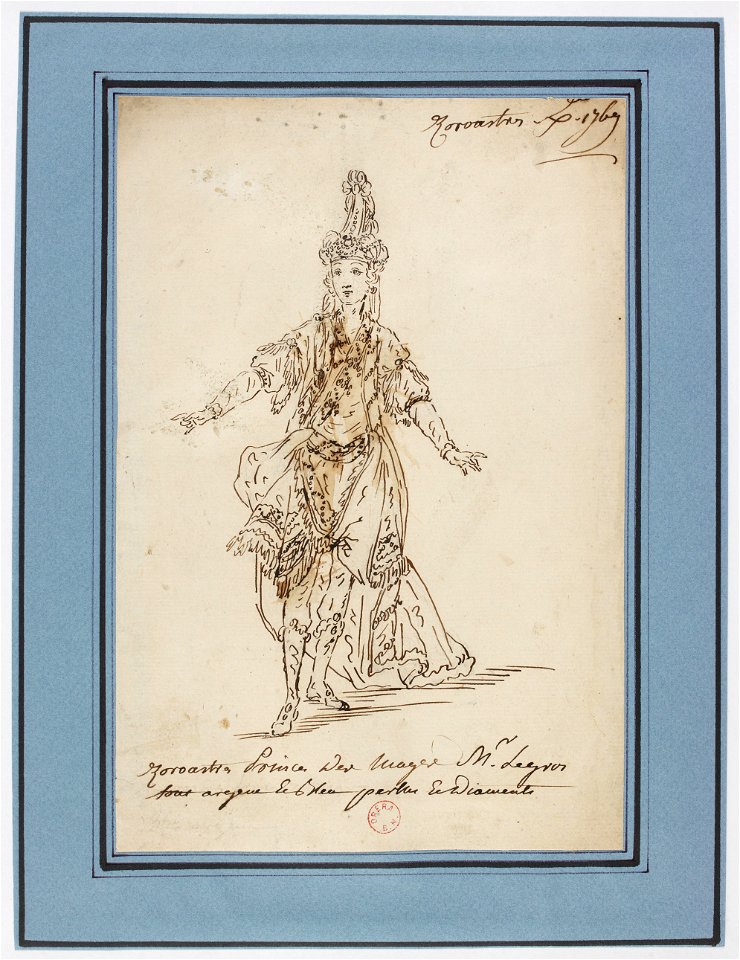 Zoroastres 1769
Zoroastres Prince Des Mages Mr. Legros
tout argent Et bleu perles Et Diaments
OPERA
B. N.